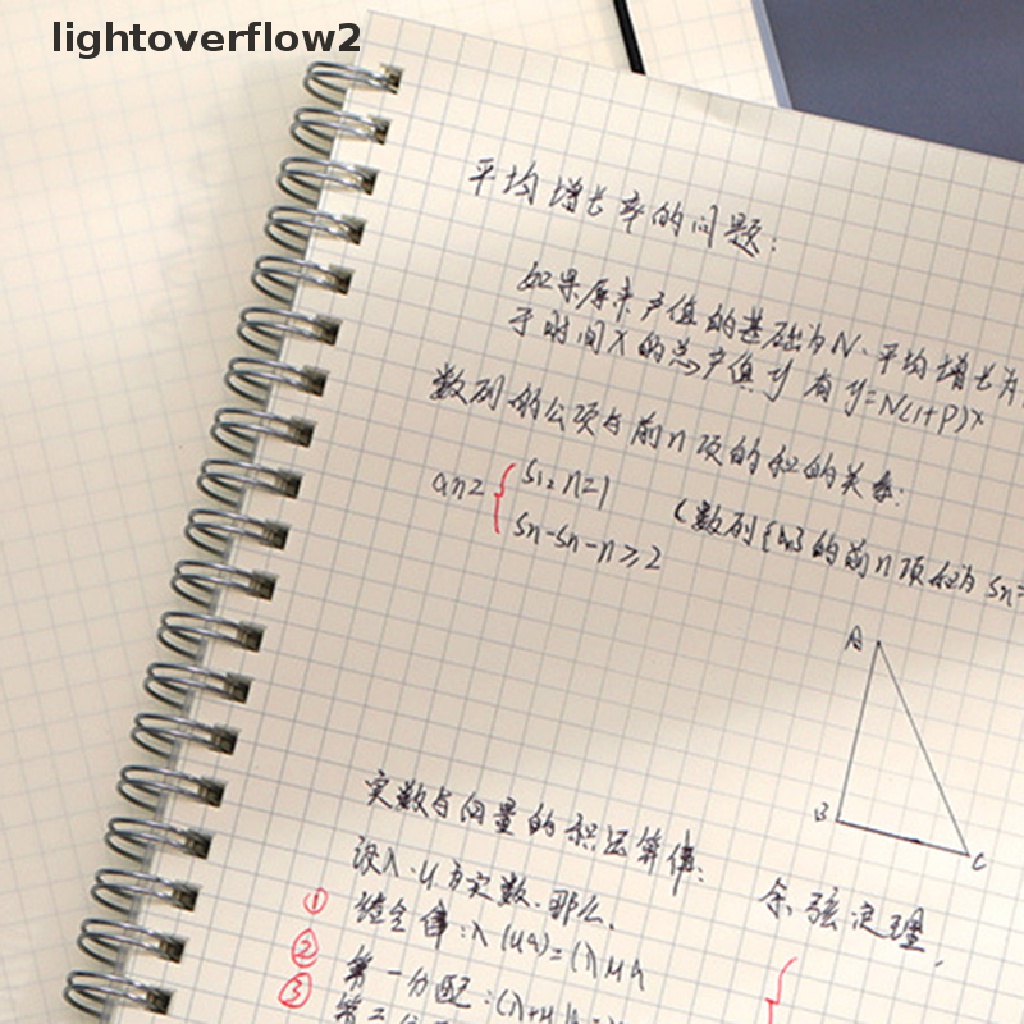 lightoverflow2
平均增长率的问题:
如果原来产值的基础为N.平均增长为
于时间X的总产值y有y=N(1+P)x
数列的公项与前n项的和的关系:
an= { S1, n=1
Sn-Sn-n≥2
(数列{an}的前n项和为Sn=
A
B
C
实数与向量的积运算律:
设入.u为实数.那么、
① 结合律:λ(ua)=(λua
② 第一分配:(λ+u)a=
③ 第二分配
余弦定理,